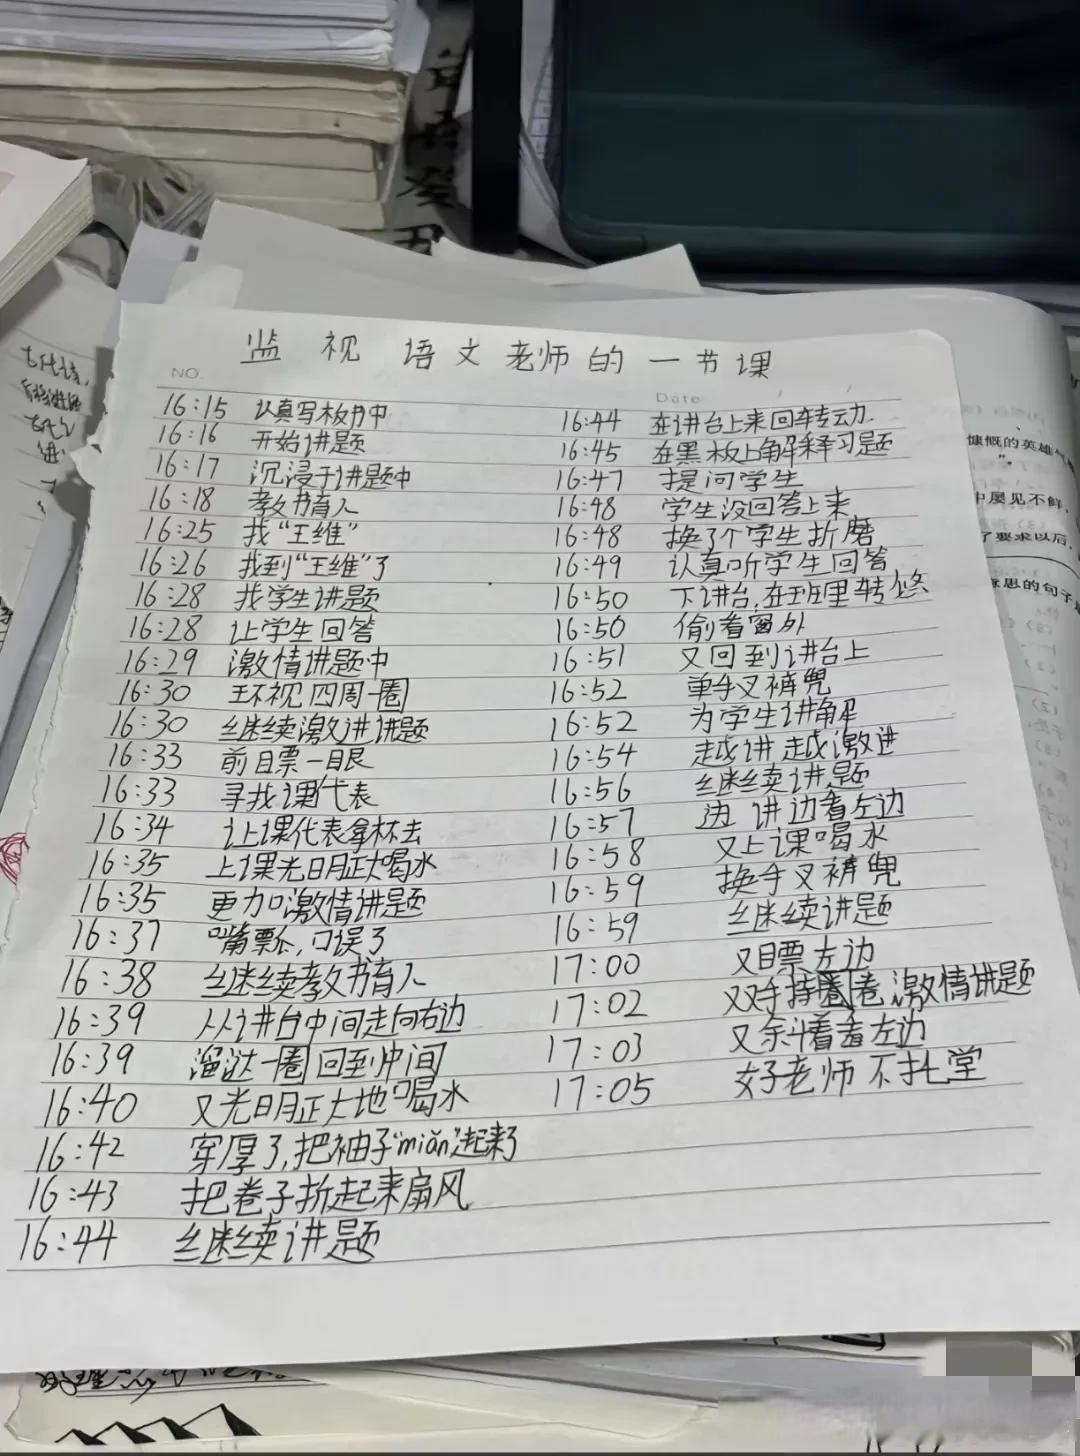 监视语文老师的一节课
NO.
Date
16:15 认真写板书中
16:16 开始讲题
16:17 沉浸于讲题中
16:18 教书育人
16:25 找“王维”
16:26 找到“王维”了
16:28 找学生讲题
16:28 让学生回答
16:29 激情讲题中
16:30 环视四周一圈
16:30 继续激进讲题
16:33 前瞟一眼
16:33 寻找课代表
16:34 让课代表拿杯去
16:35 上课光明正大喝水
16:35 更加激情讲题
16:37 嘴瓢,口误了
16:38 继续教书育人
16:39 从讲台中间走向右边
16:39 溜达一圈回到中间
16:40 又光明正大地喝水
16:42 穿厚了,把袖子“miǎn”起来了
16:43 把卷子折起来扇风
16:44 继续讲题
16:44 在讲台上来回转动
16:45 在黑板上解释习题
16:47 提问学生
16:48 学生没回答上来
16:48 换了个学生折磨
16:49 认真听学生回答
16:50 下讲台,在班里转悠
16:50 偷看窗外
16:51 又回到讲台上
16:52 单手叉裤兜
16:52 为学生讲解
16:54 越讲越激进
16:56 继续讲题
16:57 边讲边看左边
16:58 又上课喝水
16:59 换手叉裤兜
16:59 继续讲题
17:00 又瞟左边
17:02 双手持卷激情讲题
17:03 又斜着看左边
17:05 好老师不扎堂
慷慨的英雄气
”。
中屡见不鲜,
了要求以后,
意思的句子